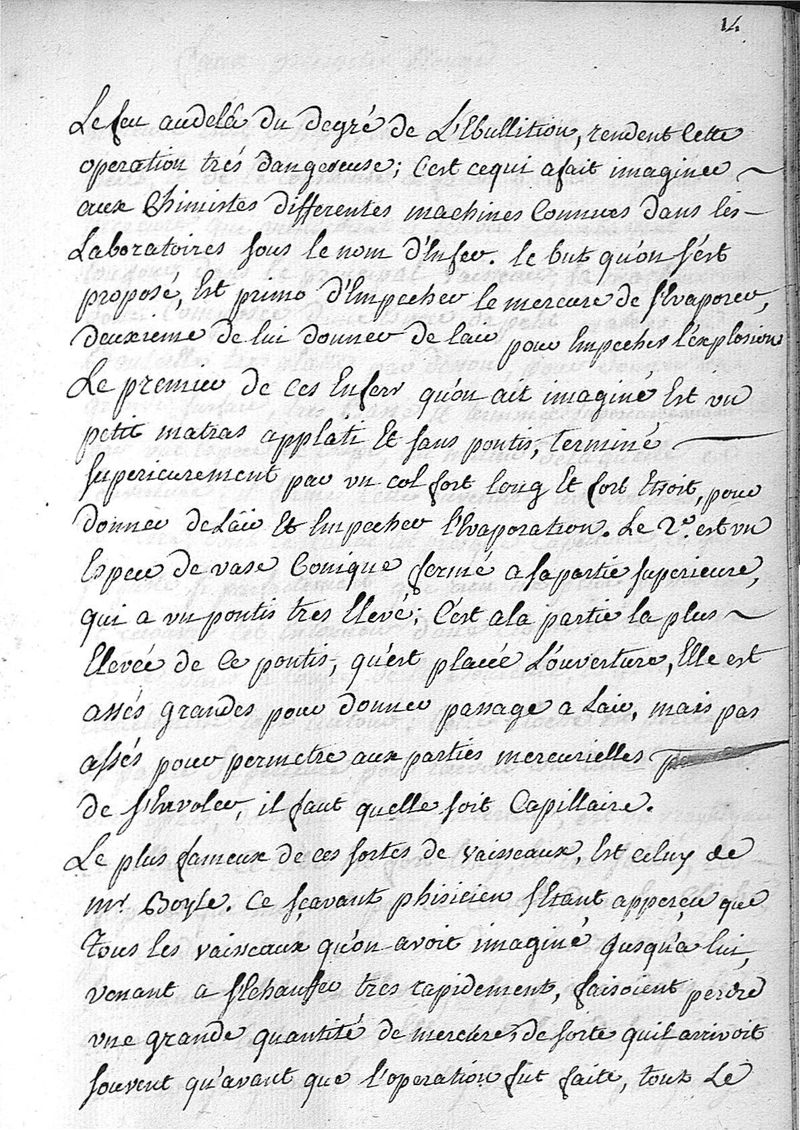 14
Le feu audelà du degré de L'Ebullition, rendent cette
operation trés dangereuse; c'est cequi a fait imaginer
aux Chimistes differentes machines Connues dans les
Laboratoires sous le nom d'Enfer. le but qu'on s'est
proposé, Est primo d'Empecher le mercure de s'Evaporer,
deuxieme de lui donner de l'air pour Empecher l'explosion
Le premier de ces Enfers qu'on ait imaginé Est un
petit matras applati Et sans pontis, terminé
superieurement par un col fort long Et fort Etroit, pour
donner de L'air Et Empecher l'Evaporation. Le 2.e est un
Espece de vase Conique fermé a sa partie superieure,
qui a un pontis tres Elevé; C'est a la partie la plus
Elevée de Ce pontis, qu'est placée L'ouverture, Elle est
assés grandes pour donner passage a L'air, mais pas
assés pour permetre aux parties mercurielles
de s'Envoler, il faut quelle soit Capillaire.
Le plus fameux de ces sortes de vaisseaux, Est celuy de
mr. Boyle. Ce sçavant phisicien s'Etant apperçu que
tous les vaisseaux qu'on avoit imaginé jusqu'a lui,
venant a s'Echauffer tres rapidement, faisoient perdre
une grande quantité de mercure, de sorte quil arrivoit
souvent qu'avant que l'operation fut faite, tout Le